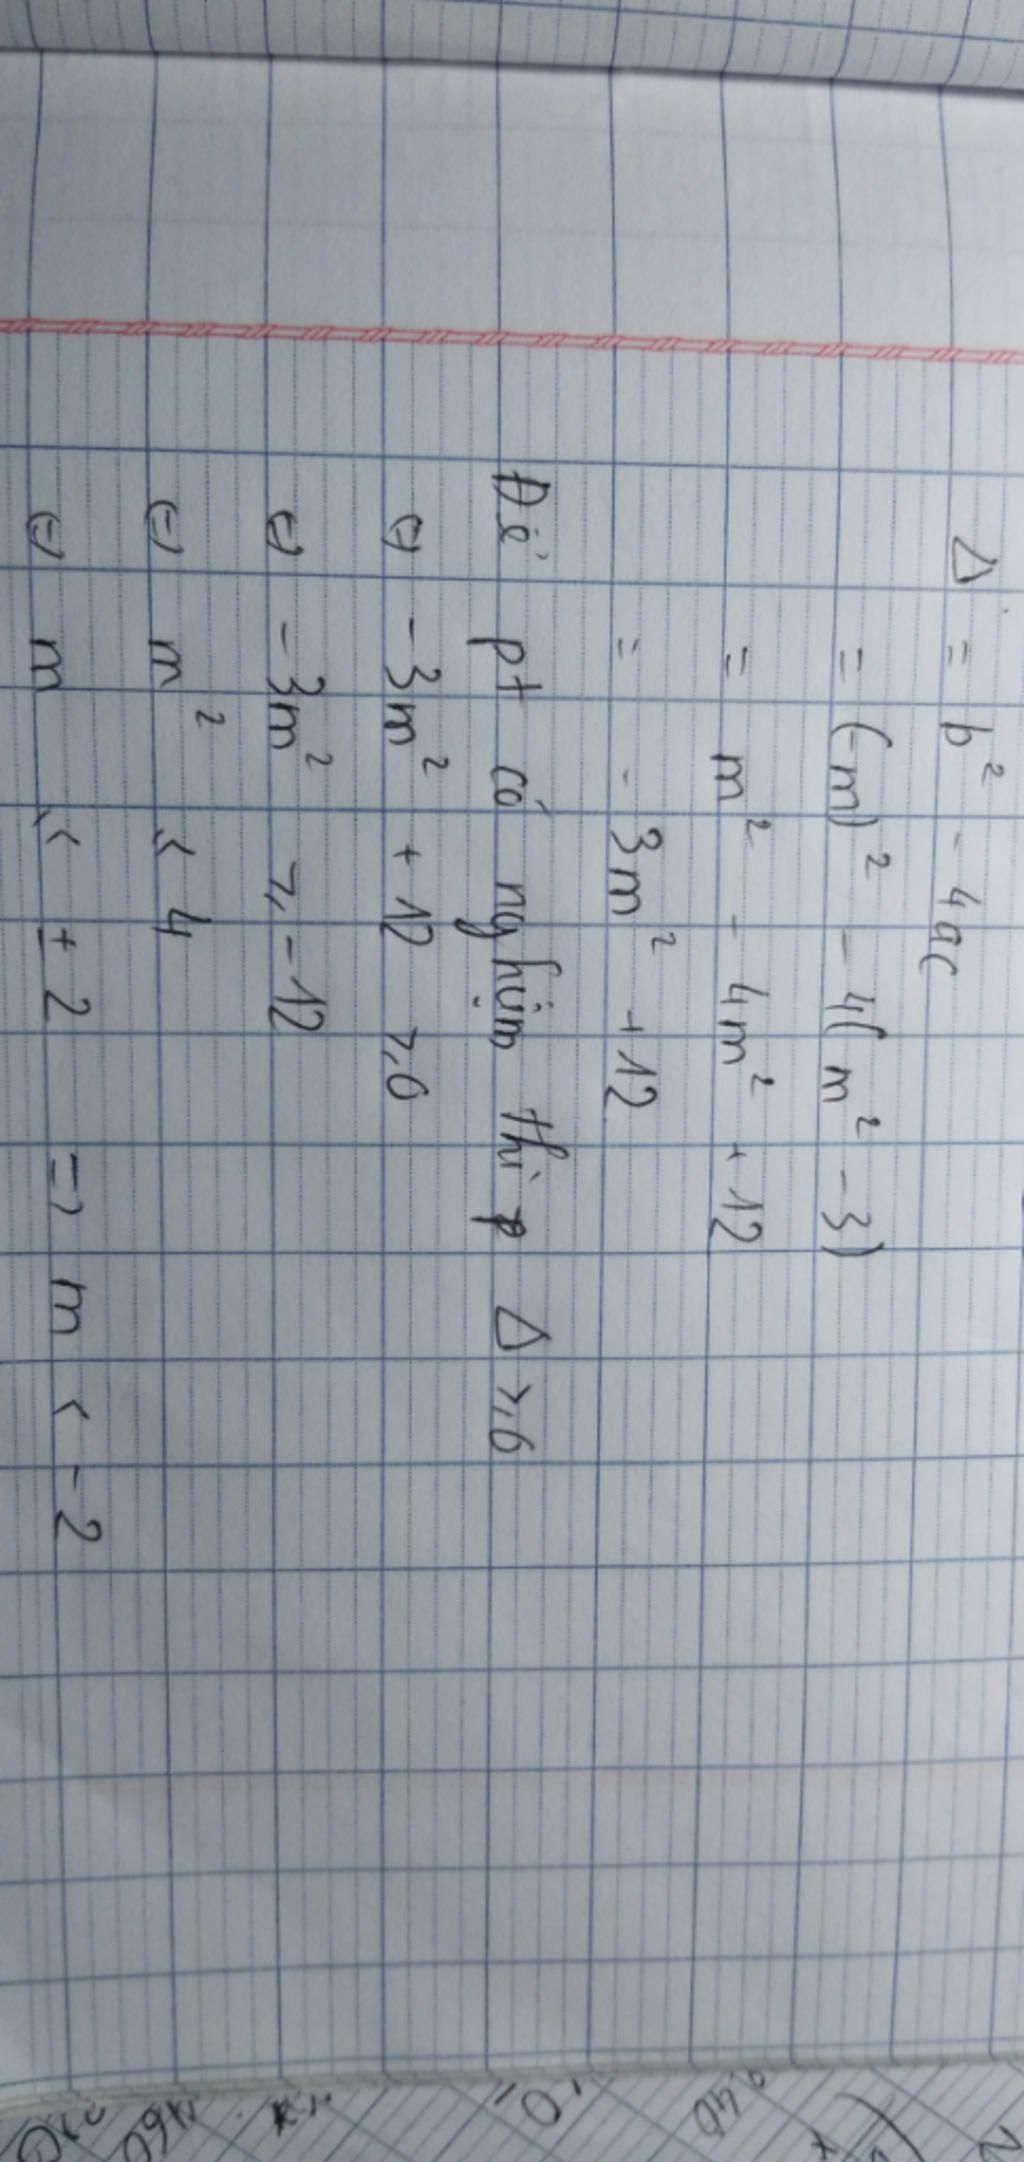 Δ = b² - 4ac
= (-m)² - 4(m² - 3)
= m² - 4m² + 12
= - 3m² + 12
Để pt có nghiệm thì Δ ⩾ 0
⇔ -3m² + 12 ⩾ 0
⇔ -3m² ⩾ -12
⇔ m² ⩽ 4
⇔ m ⩽ ± 2 => m < -2